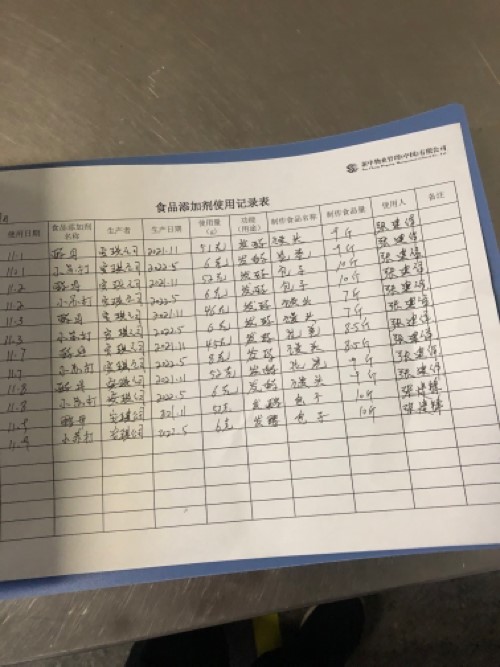 新中物业管理(中国)有限公司
食品添加剂使用记录表
使用日期 食品添加剂名称 生产者 生产日期 使用量(g) 功能(用途) 制作食品名称 制作食品量 使用人 备注
11.1 酵母 安琪公司 2021.11 51克 发酵 馒头 9斤 张建锋
11.1 小苏打 安琪公司 2022.5 6克 发酵 9斤 张建锋
11.2 酵母 安琪公司 2021.11 52克 发酵 包子 10斤 张建锋
11.2 小苏打 安琪公司 2022.5 6克 发酵 包子 10斤 张建锋
11.3 酵母 安琪公司 2021.11 46克 发酵 馒头 7斤 张建锋
11.3 小苏打 安琪公司 2022.5 6克 发酵 7斤 张建锋
11.7 酵母 安琪公司 2021.11 45克 发酵 馒头 8.5斤 张建锋
11.7 小苏打 安琪公司 2022.5 发酵 8.5斤 张建锋
11.8 酵母 安琪公司 2021.11 52克 发酵 9斤 张建锋
11.8 小苏打 安琪公司 2022.5 6克 发酵 馒头 9斤 张建锋
11.9 酵母 安琪公司 2021.11 52克 发酵 包子 10斤 张建锋
11.9 小苏打 安琪公司 2022.5 6克 发酵 包子 10斤 张建锋